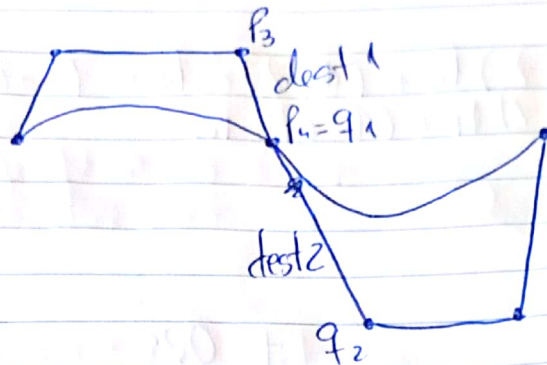 P₃
dest 1
P₄=q₁
dest 2
q₂